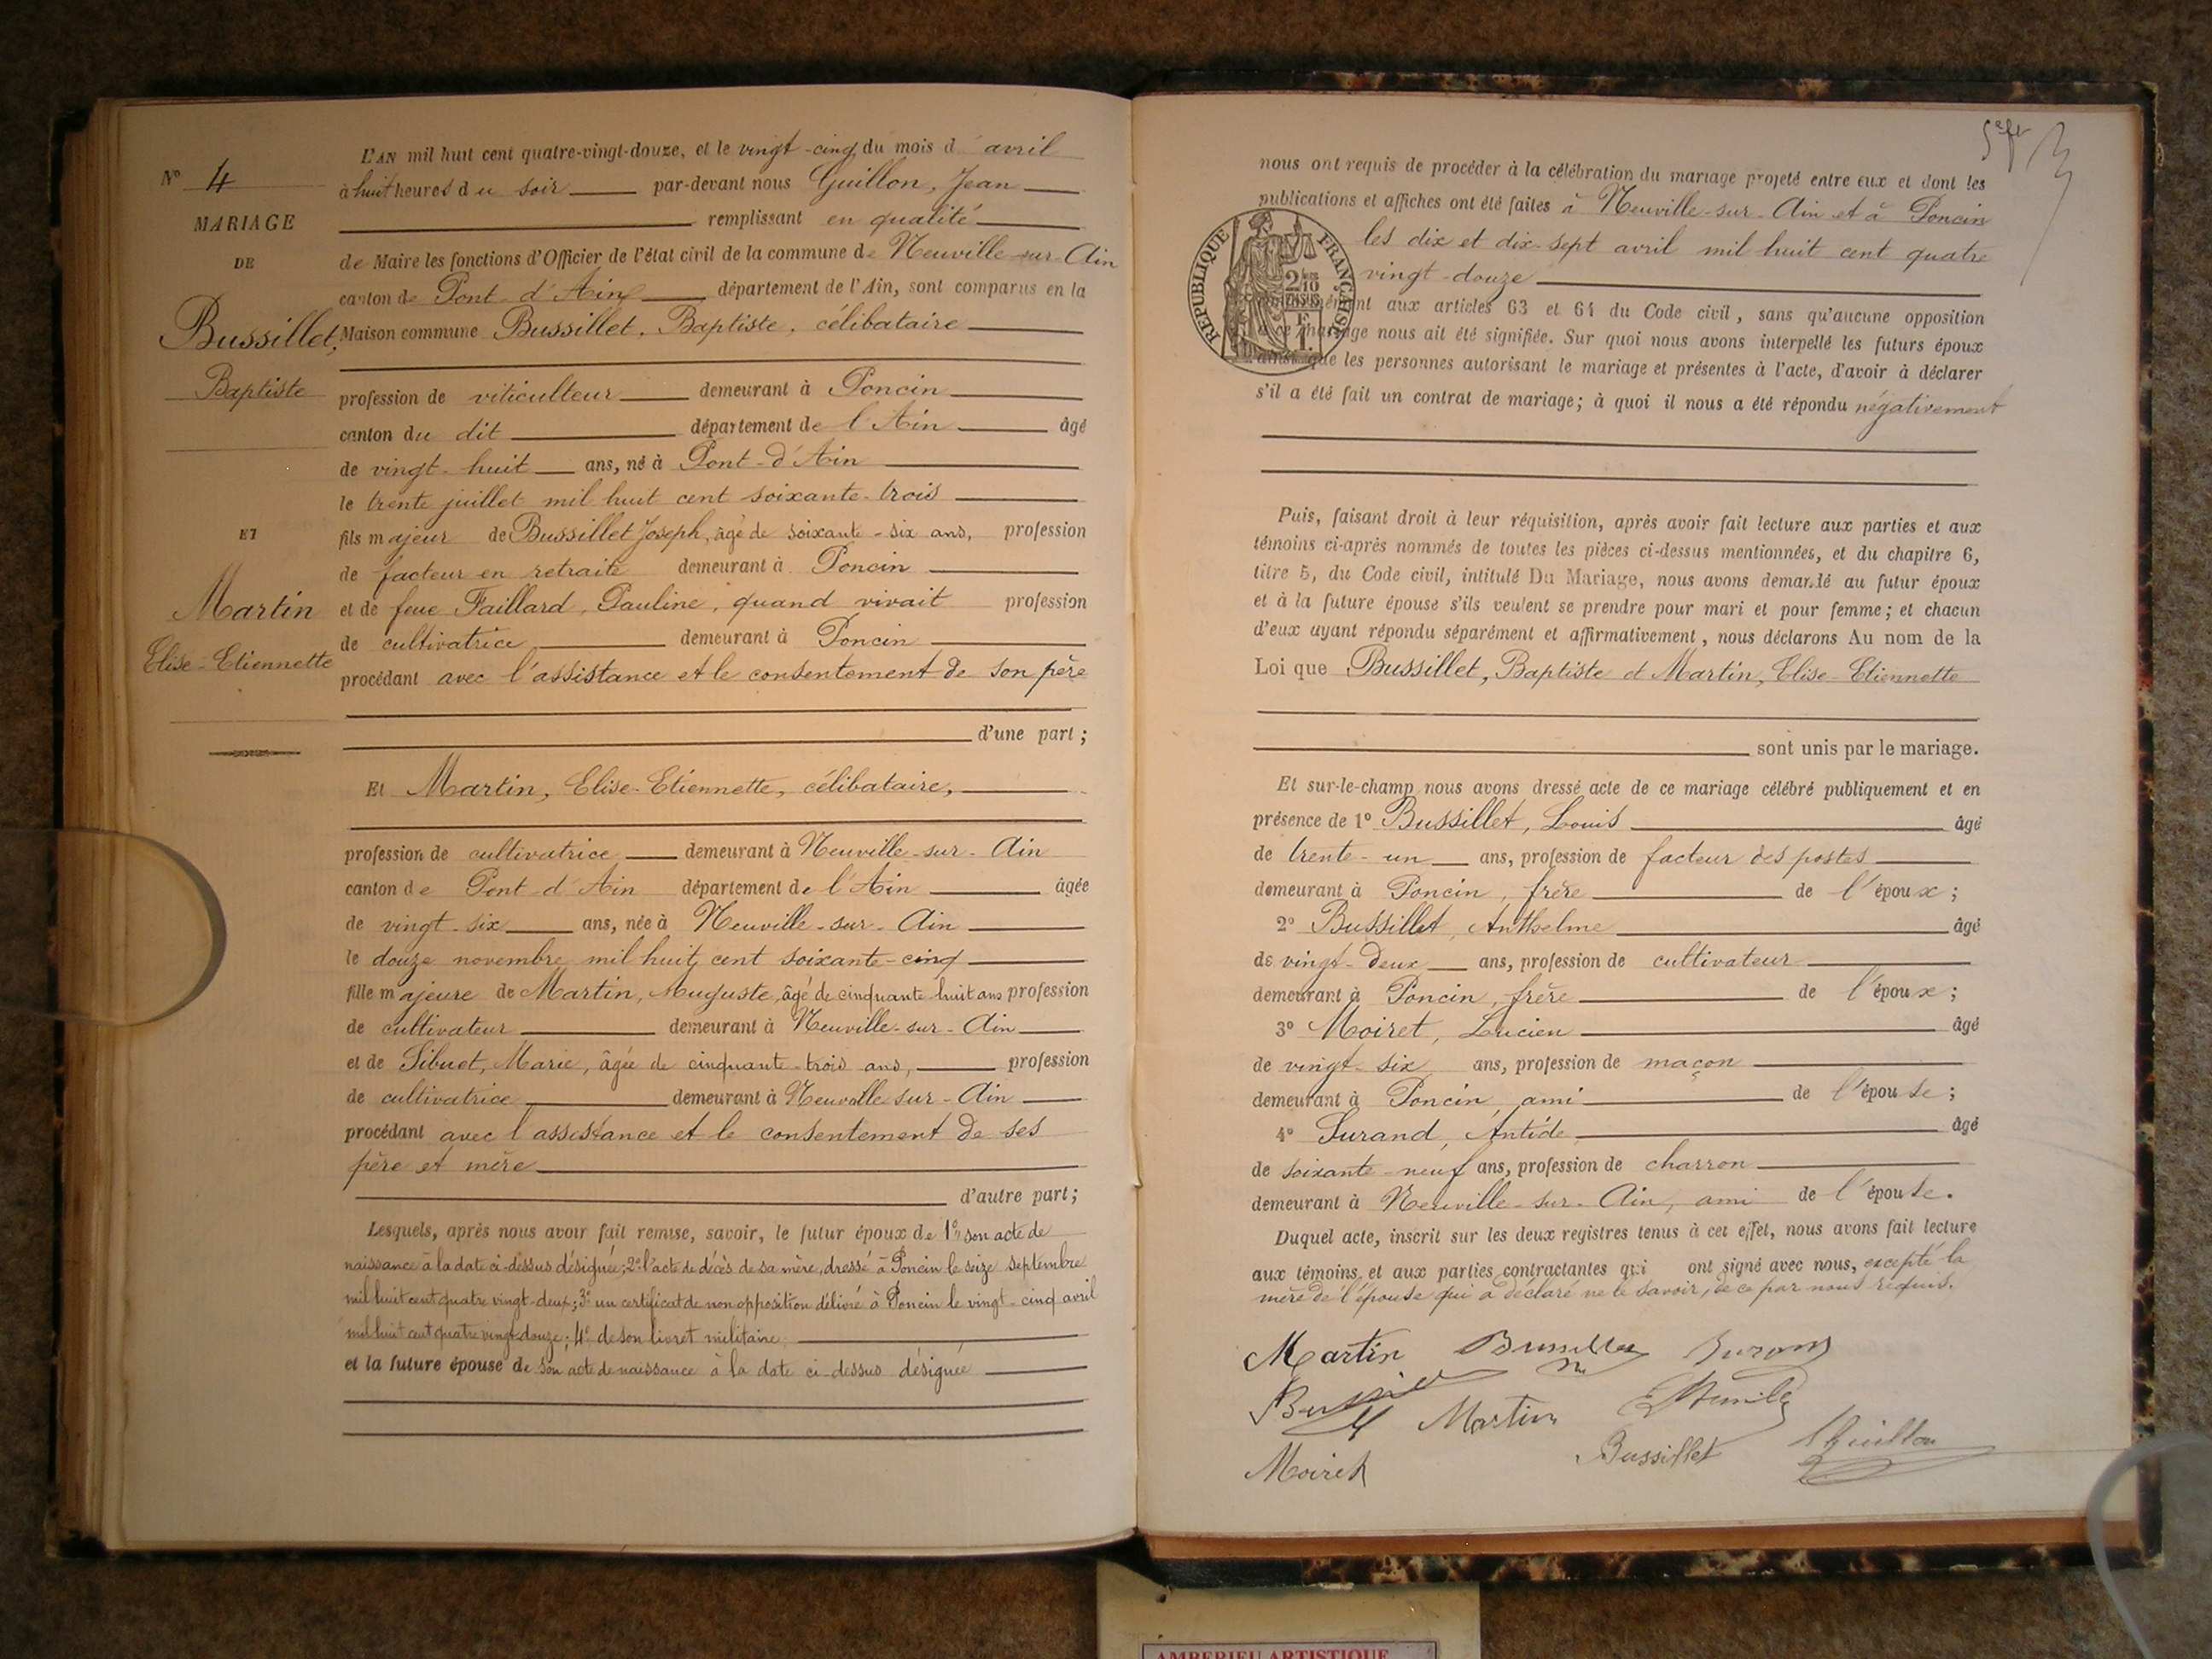 N° 4
MARIAGE
DE
Bussillet,
Baptiste
ET
Martin
Elise-Etiennette
L'AN mil huit cent quatre-vingt-douze, et le vingt-cinq du mois d'avril
à huit heures du soir par-devant nous Guillon, Jean
remplissant en qualité
de Maire les fonctions d'Officier de l'état civil de la commune de Neuville-sur-Ain
canton de Pont-d'Ain département de l'Ain, sont comparus en la
Maison commune Bussillet, Baptiste, célibataire
profession de viticulteur demeurant à Poncin
canton du dit département de l'Ain âgé
de vingt-huit ans, né à Pont-d'Ain
le trente juillet mil huit cent soixante-trois
fils majeur de Bussillet Joseph, âgé de soixante-six ans, profession
de facteur en retraite demeurant à Poncin
et de feue Faillard, Pauline, quand vivait profession
de cultivatrice demeurant à Poncin
procédant avec l'assistance et le consentement de son père
d'une part;
Et Martin, Elise-Etiennette, célibataire,
profession de cultivatrice demeurant à Neuville-sur-Ain
canton de Pont d'Ain département de l'Ain âgée
de vingt-six ans, née à Neuville-sur-Ain
le douze novembre mil huit cent soixante-cinq
fille majeure de Martin, Auguste, âgé de cinquante huit ans profession
de cultivateur demeurant à Neuville-sur-Ain
et de Sibuet, Marie, âgée de cinquante-trois ans, profession
de cultivatrice demeurant à Neuville sur-Ain
procédant avec l'assistance et le consentement de ses
père et mère
d'autre part;
Lesquels, après nous avoir fait remise, savoir, le futur époux de 1° son acte de
naissance à la date ci-dessus désignée; 2° l'acte de décès de sa mère, dressé à Poncin le seize septembre
mil huit cent quatre vingt-deux; 3° un certificat de non opposition délivré à Poncin le vingt-cinq avril
mil huit cent quatre vingt douze; 4° de son livret militaire
et la future épouse de son acte de naissance à la date ci-dessus désignée
nous ont requis de procéder à la célébration du mariage projeté entre eux et dont les
publications et affiches ont été faites à Neuville-sur-Ain et à Poncin
les dix et dix-sept avril mil huit cent quatre
vingt-douze
RÉPUBLIQUE FRANÇAISE
2/10
EN SUS
1 F.
aux articles 63 et 64 du Code civil, sans qu'aucune opposition
à ce mariage nous ait été signifiée. Sur quoi nous avons interpellé les futurs époux
ainsi que les personnes autorisant le mariage et présentes à l'acte, d'avoir à déclarer
s'il a été fait un contrat de mariage; à quoi il nous a été répondu négativement
Puis, faisant droit à leur réquisition, après avoir fait lecture aux parties et aux
témoins ci-après nommés de toutes les pièces ci-dessus mentionnées, et du chapitre 6,
titre 5, du Code civil, intitulé Du Mariage, nous avons demandé au futur époux
et à la future épouse s'ils veulent se prendre pour mari et pour femme; et chacun
d'eux ayant répondu séparément et affirmativement, nous déclarons Au nom de la
Loi que Bussillet, Baptiste et Martin, Elise-Etiennette
sont unis par le mariage.
Et sur-le-champ nous avons dressé acte de ce mariage célébré publiquement et en
présence de 1° Bussillet, Louis âgé
de trente-un ans, profession de facteur des postes
demeurant à Poncin, frère de l'époux;
2° Bussillet, Anthelme âgé
de vingt-deux ans, profession de cultivateur
demeurant à Poncin, frère de l'époux;
3° Moiret, Lucien âgé
de vingt-six ans, profession de maçon
demeurant à Poncin, ami de l'épouse;
4° Surand, Antide âgé
de soixante-neuf ans, profession de charron
demeurant à Neuville-sur-Ain, ami de l'épouse.
Duquel acte, inscrit sur les deux registres tenus à cet effet, nous avons fait lecture
aux témoins et aux parties contractantes qui ont signé avec nous, excepté la
mère de l'épouse qui a déclaré ne le savoir, de ce par nous requis.
Martin
Martin
Moiret Bussillet Guillon
AMBERIEU ARTISTIQUE